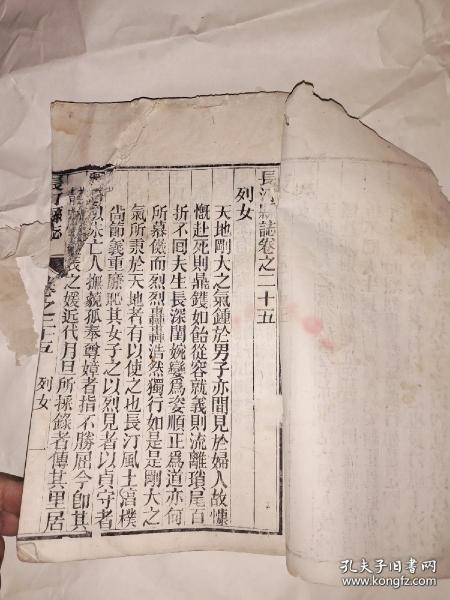 長汀縣誌卷之二十五
列女
天地剛大之氣鍾於男子亦間見於婦人故慷
慨赴死則鼎鑊如飴從容就義則流離瑣尾百
折不回夫生長深閨婉孌爲姿順正爲道亦何
所慕傚而烈烈轟轟浩然獨行如是是剛大之
氣所秉於天地者有以使之也長汀風土湻樸
尚節義重廉恥其女子之以烈見者以貞守者
以未亡人撫藐孤奉尊嫜者指不勝屈今卽其
之媛近代月旦所採錄者傳其里居
長汀縣志
卷之二十五
列女
一
孔夫子旧书网
www.kongfz.com